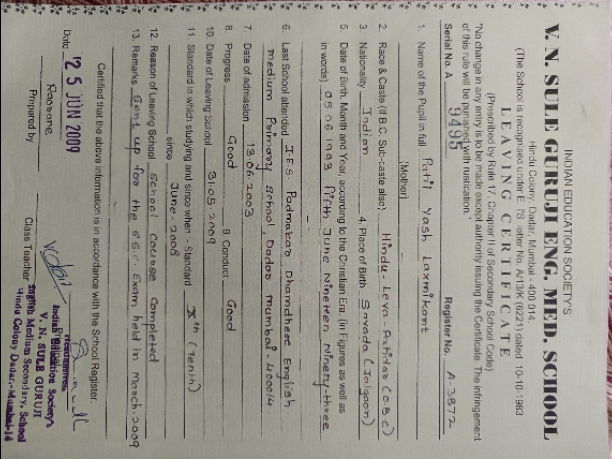 INDIAN EDUCATION SOCIETY'S
V. N. SULE GURUJI ENG. MED. SCHOOL
Hindu Colony, Dadar, Mumbai - 400 014.
(The School is recognised under E. I's letter No. A/13/K (6221) dated 10-10-1983
LEAVING CERTIFICATE
(Prescribed by Rule 17, Chapter II of Secondary School Code)
"No change in any entry is to be made except authority issuing the Certificate. The infringement
of this rule will be punished with rustication."
Serial No. A 9495 Register No. A-3872
1. Name of the Pupil in full Patil Yash Laxmikant
(Mother)
2. Race & Caste (If B.C. Sub-caste also) Hindu - Leva - Patidar (O.B.C)
3. Nationality Indian 4. Place of Birth Savada (Jalgaon)
5. Date of Birth, Month and Year, according to the Christian Era, (in Figures as well as
in words) 05.06.1993 fifth June Nineteen Ninety-three
6. Last School attended I.E.S. Padmakar Dhamdhere English
medium Primary School, Dadar Mumbai 400014
7. Date of admission 13.06.2003
8. Progress Good 9. Conduct Good
10. Date of Leaving School 31.05.2009
11. Standard in which studying and since when :- Standard Xth (Tenth)
since June-2008
12. Reason of Leaving School School Course Completed
13. Remarks Sent up for the S.S.C. Exam held in March-2009
Certified that the above information is in accordance with the School Register.
Date 25 JUN 2009
Prepared by Class Teacher
Indian Education Society's
V. N. SULE GURUJI
English Medium Secondary School
Hindu Colony Dadar, Mumbai-14